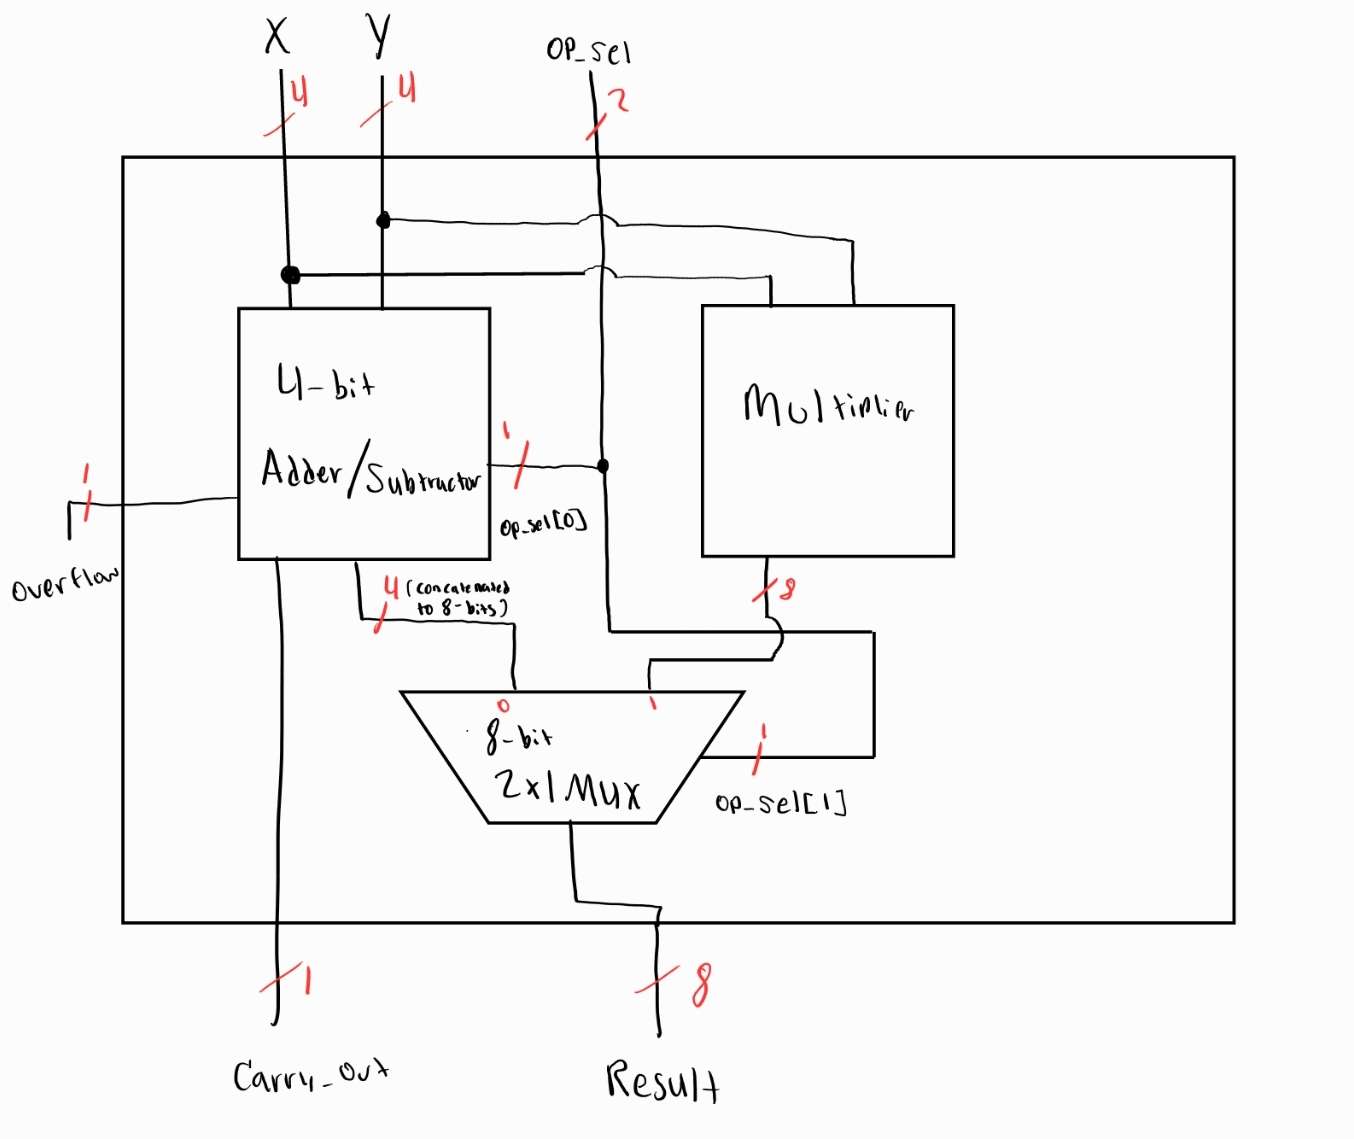 X Y OP_sel
4 4 2
4-bit
Adder/Subtractor
Multiplier
1
1
Op_sel[0]
Overflow
4 (concatenated
to 8-bits)
8
0 1
8-bit
2x1 MUX
1
Op_sel[1]
1 8
Carry_Out Result